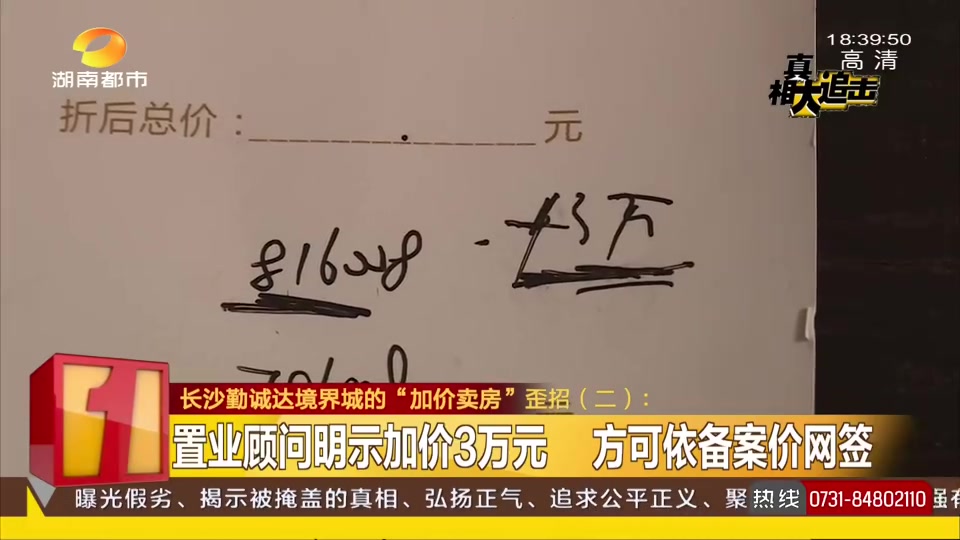 湖南都市
18:39:50
高清
真相大追击
折后总价:______________元
816008 - +3万
长沙勤诚达境界城的“加价卖房”歪招（二）：
置业顾问明示加价3万元 方可依备案价网签
曝光假劣、揭示被掩盖的真相、弘扬正气、追求公平正义、聚
热线 0731-84802110
强有